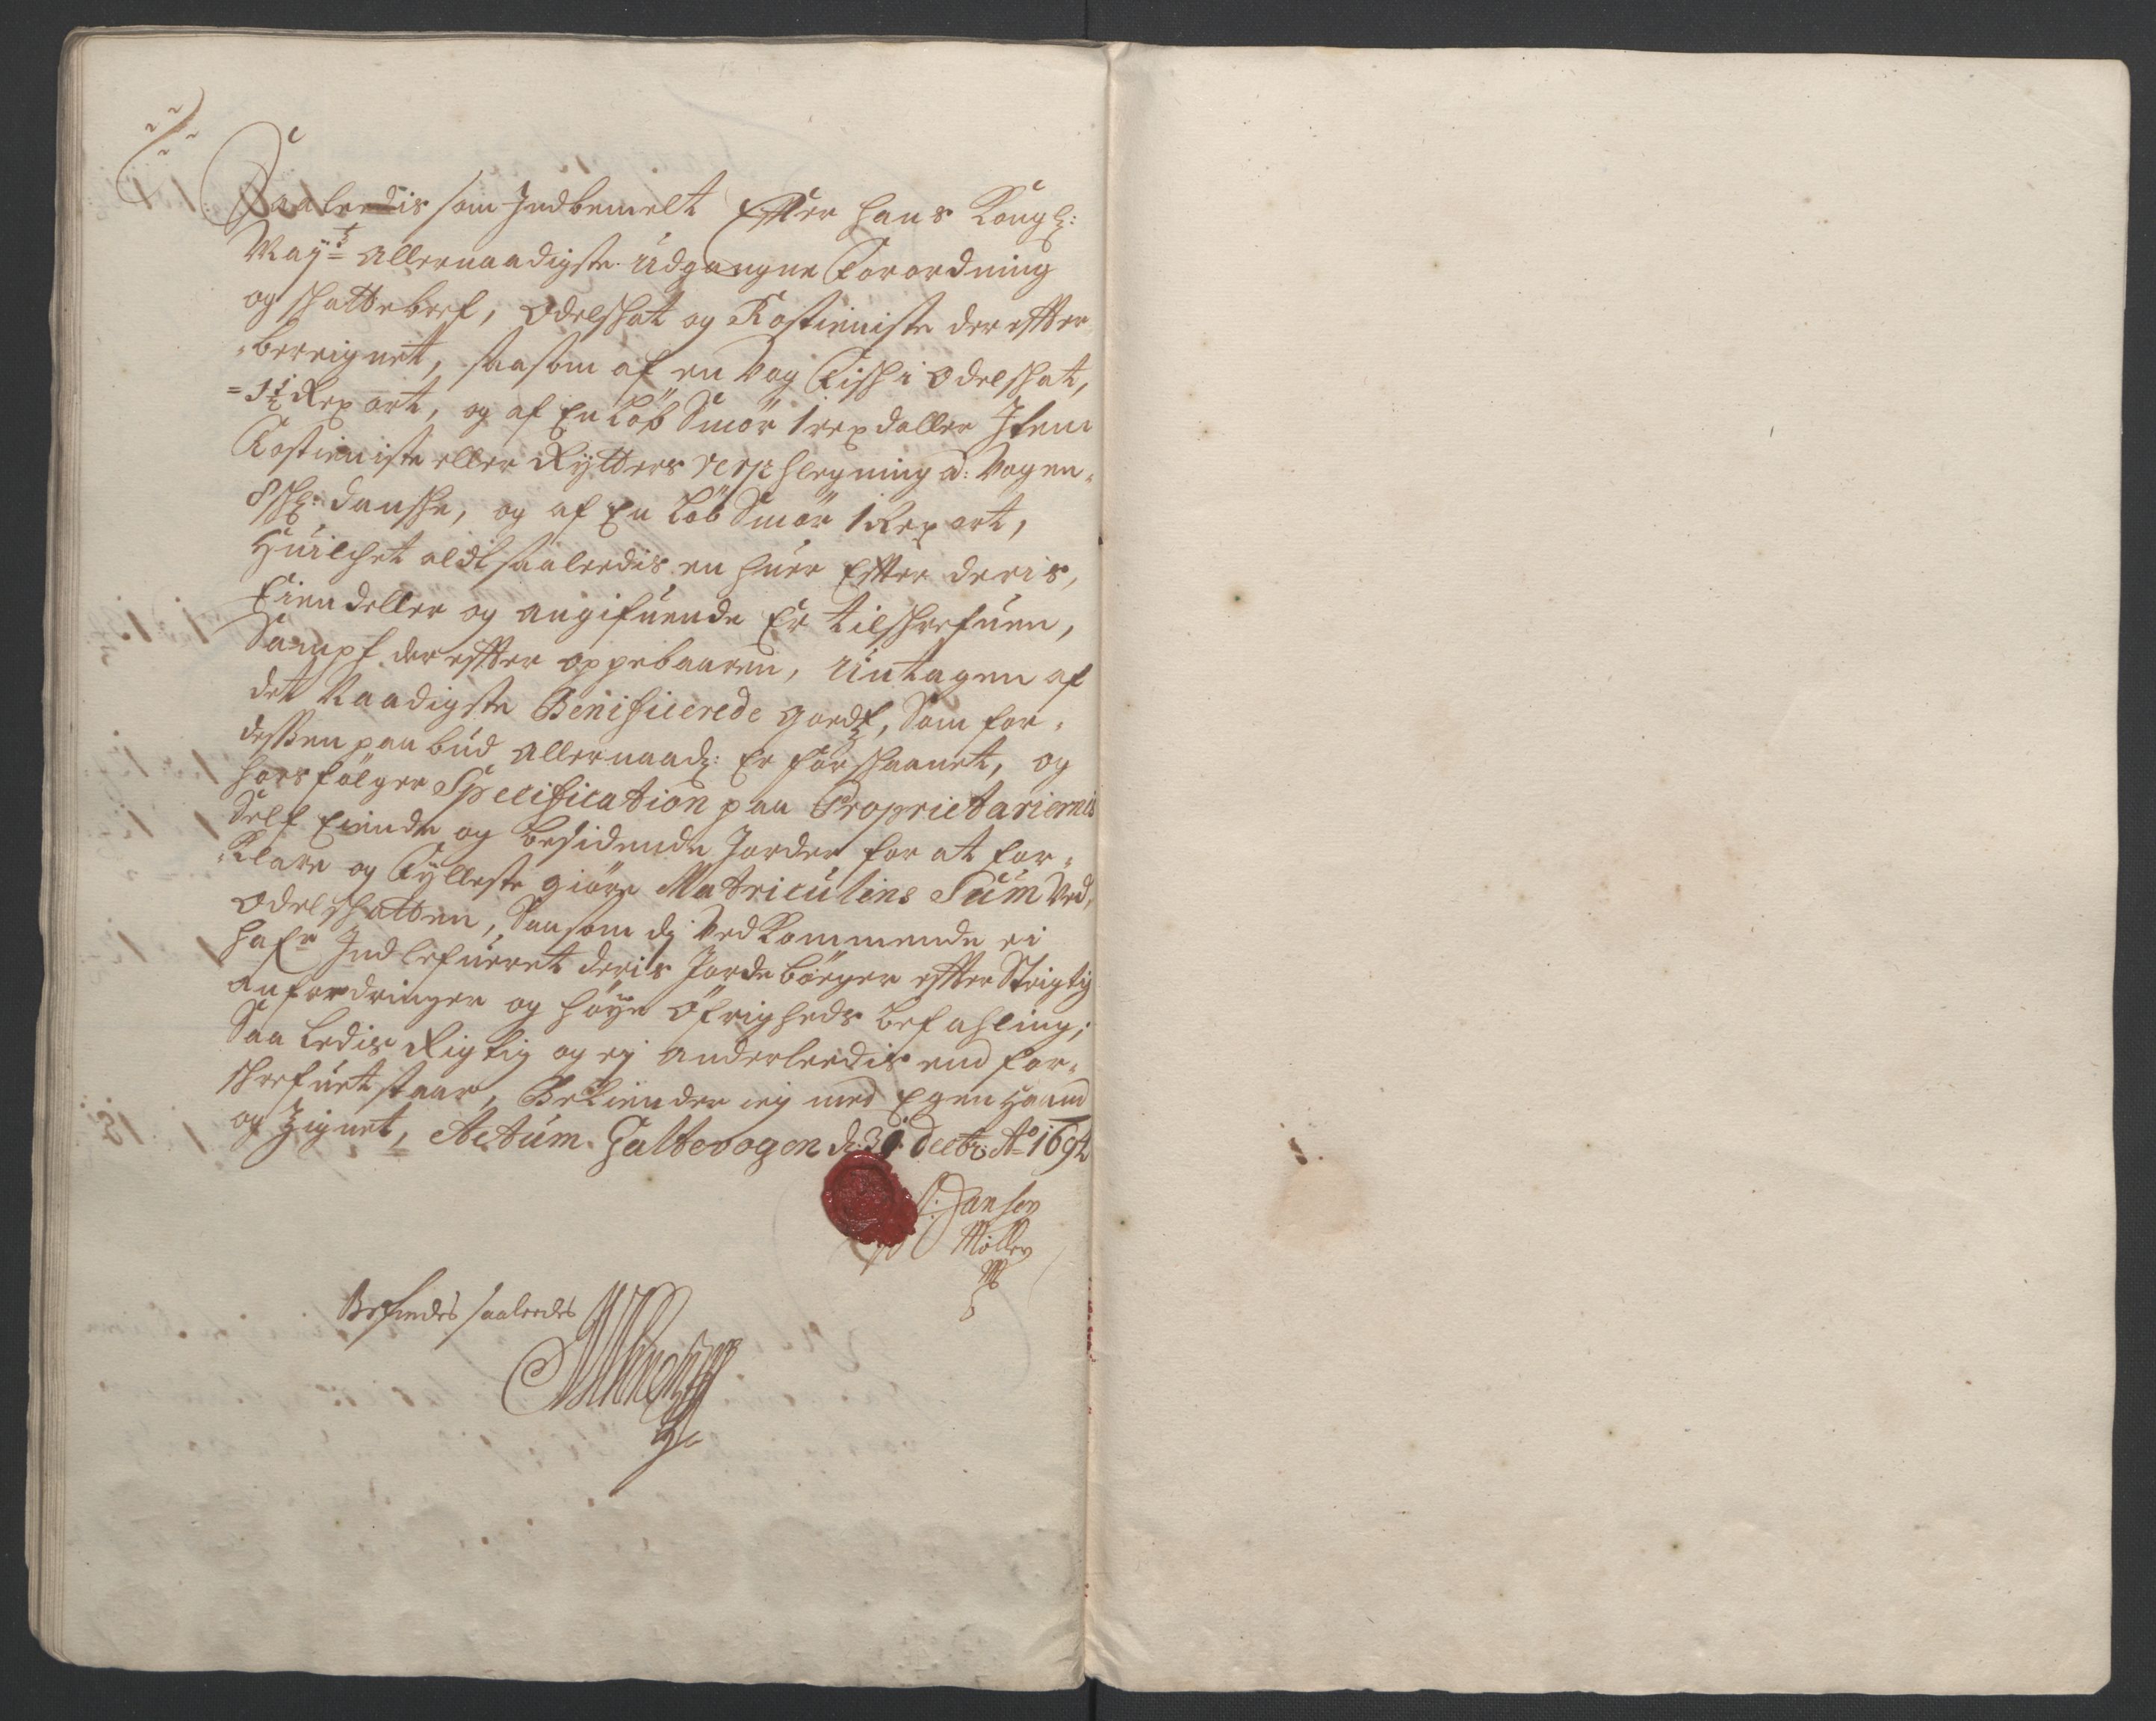 Saaleedis som Indbemelt Effter Hans Kongl:
May: Allernaadigste Udgangne Forordning
og skattebref, Odelskat og Rostieniste der effter
bereignet, saasom af en Vog Fisk i Odelskat,
1½ Rix ort, og af En Løb Smør 1 rixdaller Item
Rostieniste eller Rytters verpflegning a: Vogen
8 sk: danske, og af En Løb Smør 1 Rix ort,
Huilchet aldt saaleedis en huer Effter deris
Eiendeller og angifuende Er tilskrefuen,
Sampt der effter oppebaaren, Untagen af
det Naadigste Benificerede goedz, Som for-
dessen paabud Allernaad: Er forskaanet, og
hoesfølger Specification paa Proprietariernis
Self Eiende og besidende Jorder for at for-
Klare og Fylleste giøre Matriculens Sum Ved
Odelskatten, Saasom dj Vedkommende ei
hafr Indlefueret deris Jordebøger effter Strigtig
anfordringer og høye Øfrigheds befahling;
Saaledis Rigtig og ej anderleedis end for-
skrefuet staar, Bekiender ieg med Egen Haand
og Zignet, Actum Galtevogen d: 31 Decbr: Ao 1692
Jansen
Møller
Befindes saaleedes